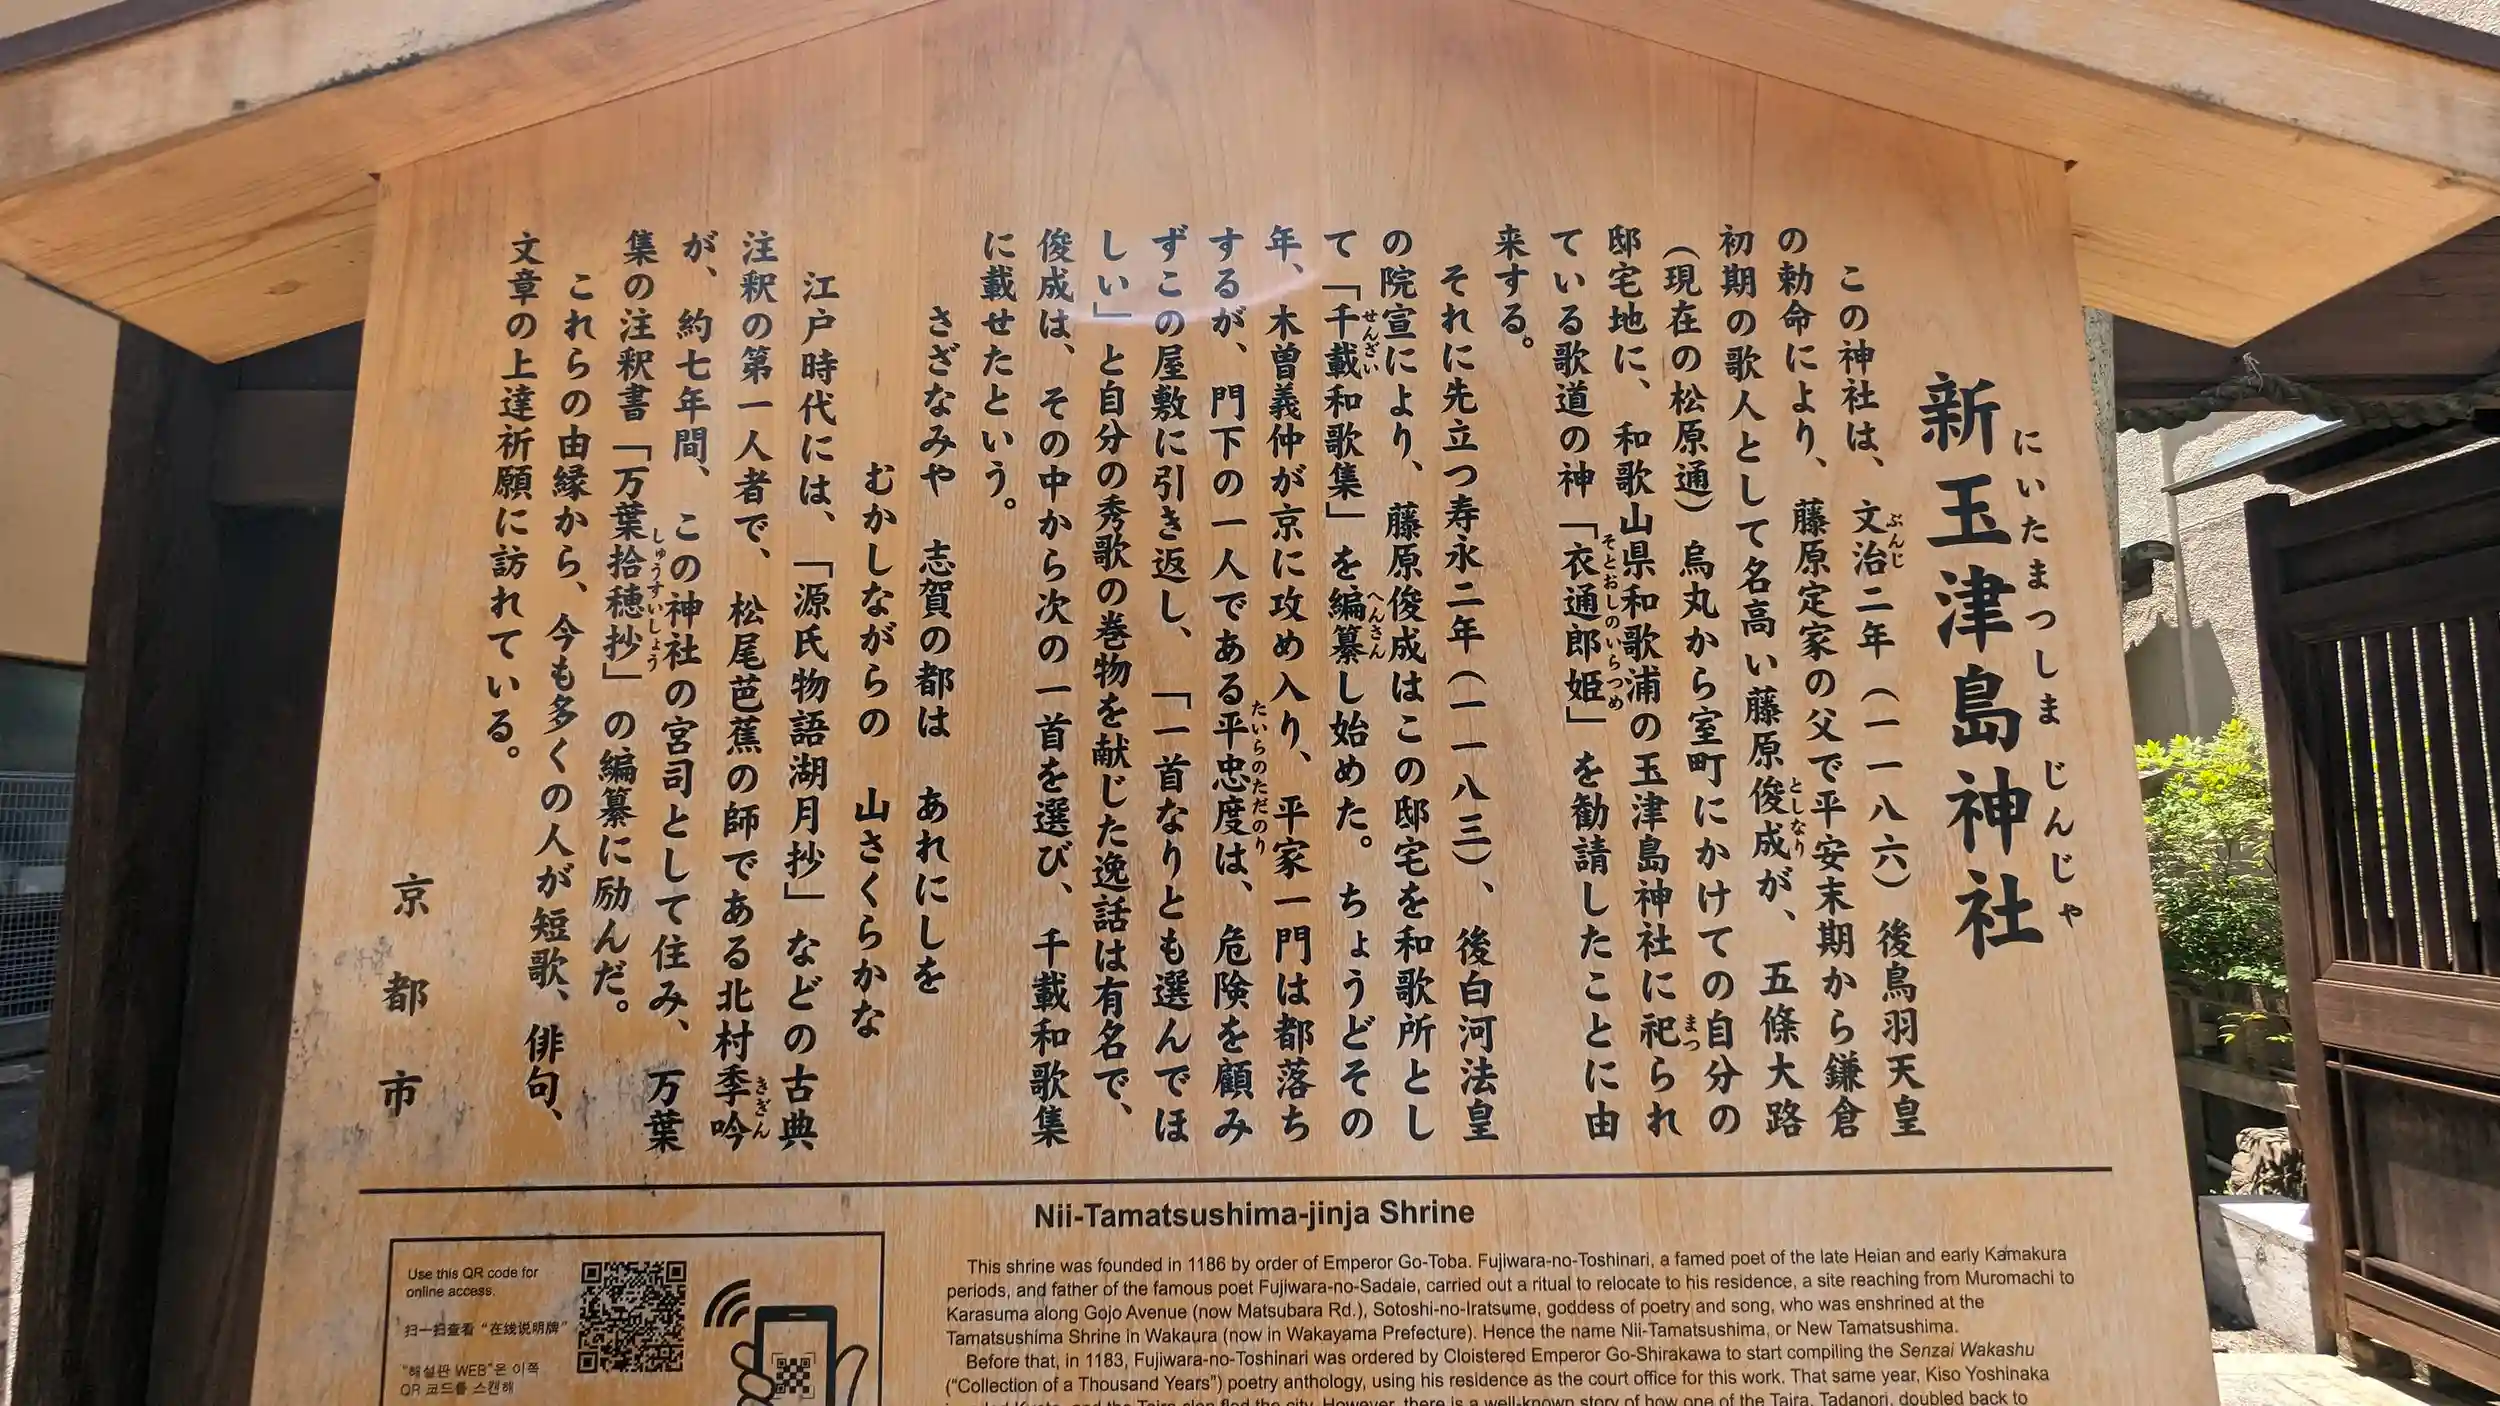 新玉津島神社
にいたまつしまじんじゃ
この神社は、文治二年（一一八六）後鳥羽天皇
ぶんじ
の勅命により、藤原定家の父で平安末期から鎌倉
初期の歌人として名高い藤原俊成が、五條大路
としなり
（現在の松原通）烏丸から室町にかけての自分の
邸宅地に、和歌山県和歌浦の玉津島神社に祀られ
まつ
ている歌道の神「衣通郎姫」を勧請したことに由
そとおしのいらつめ
来する。
それに先立つ寿永二年（一一八三）、後白河法皇
の院宣により、藤原俊成はこの邸宅を和歌所とし
て「千載和歌集」を編纂し始めた。ちょうどその
せんざい
へんさん
年、木曽義仲が京に攻め入り、平家一門は都落ち
するが、門下の一人である平忠度は、危険を顧み
たいらのただのり
ずこの屋敷に引き返し、「一首なりとも選んでほ
しい」と自分の秀歌の巻物を献じた逸話は有名で、
俊成は、その中から次の一首を選び、千載和歌集
に載せたという。
さざなみや　志賀の都は　あれにしを
むかしながらの　山さくらかな
江戸時代には、「源氏物語湖月抄」などの古典
注釈の第一人者で、松尾芭蕉の師である北村季吟
きぎん
が、約七年間、この神社の宮司として住み、万葉
集の注釈書「万葉拾穂抄」の編纂に励んだ。
しゅうすいしょう
これらの由縁から、今も多くの人が短歌、俳句、
文章の上達祈願に訪れている。
京都市
Nii-Tamatsushima-jinja Shrine
This shrine was founded in 1186 by order of Emperor Go-Toba. Fujiwara-no-Toshinari, a famed poet of the late Heian and early Kamakura
periods, and father of the famous poet Fujiwara-no-Sadaie, carried out a ritual to relocate to his residence, a site reaching from Muromachi to
Karasuma along Gojo Avenue (now Matsubara Rd.), Sotoshi-no-Iratsume, goddess of poetry and song, who was enshrined at the
Tamatsushima Shrine in Wakaura (now in Wakayama Prefecture). Hence the name Nii-Tamatsushima, or New Tamatsushima.
Before that, in 1183, Fujiwara-no-Toshinari was ordered by Cloistered Emperor Go-Shirakawa to start compiling the Senzai Wakashu
("Collection of a Thousand Years") poetry anthology, using his residence as the court office for this work. That same year, Kiso Yoshinaka
invaded Kyoto, and the Taira clan fled the city. However, there is a well-known story of how one of the Taira, Tadanori, doubled back to
Use this QR code for
online access.
扫一扫查看“在线说明牌”
“해설판 WEB”은 이쪽
QR 코드를 스캔해